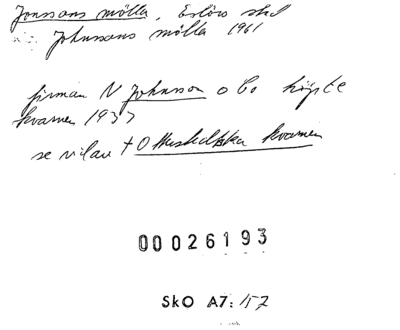 Jonssons mölla, Eslövs std
Johnssons mölla 1961
firman N Johnson o Co köpte
kvarnen 1937
se vidare + O Husholdska kvarnen
00026193
SkO A7: 157